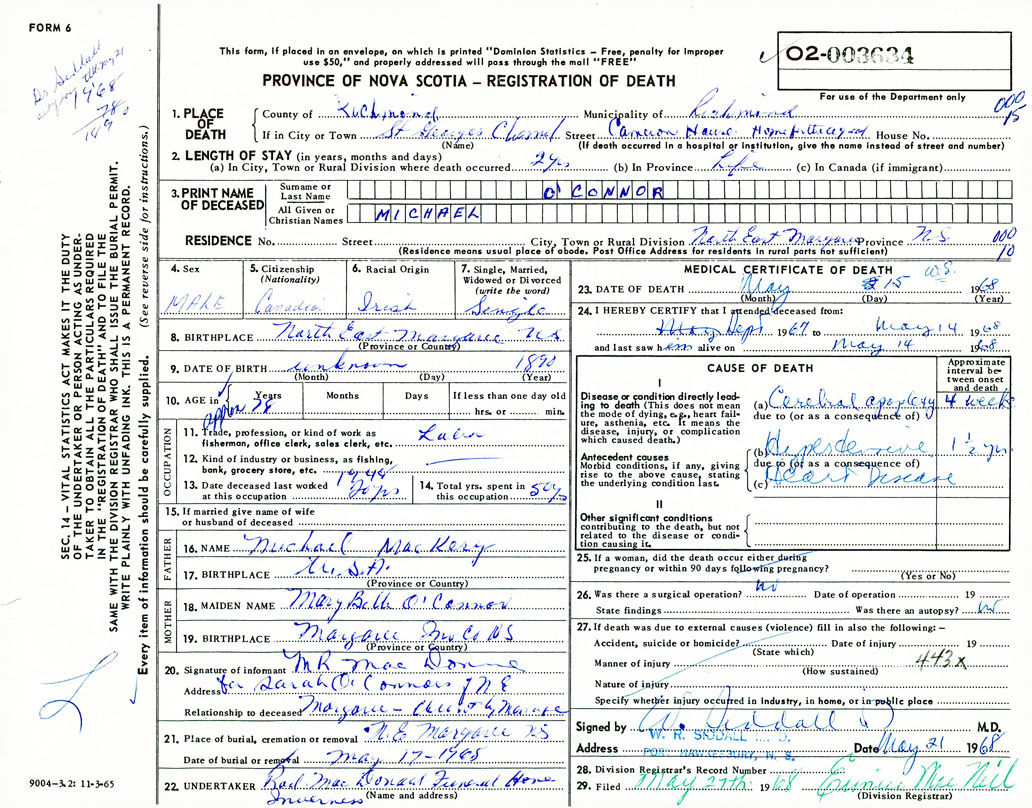 FORM 6
Dr Siddall
1968
78
1890
This form, if placed in an envelope, on which is printed "Dominion Statistics – Free, penalty for improper
use $50," and properly addressed will pass through the mail "FREE"
PROVINCE OF NOVA SCOTIA – REGISTRATION OF DEATH
O2-003634
For use of the Department only
000
15
1. PLACE OF DEATH
County of Richmond Municipality of Richmond
If in City or Town St Georges Channel Street Cameron House Home for the aged House No.
(Name) (If death occurred in a hospital or institution, give the name instead of street and number)
2. LENGTH OF STAY (in years, months and days)
(a) In City, Town or Rural Division where death occurred 2 yrs (b) In Province Life (c) In Canada (if immigrant)
3. PRINT NAME OF DECEASED
Surname or Last Name O'CONNOR
All Given or Christian Names MICHAEL
RESIDENCE No. Street City, Town or Rural Division North East Margaree Province N.S.
000
10
(Residence means usual place of abode. Post Office Address for residents in rural parts not sufficient)
4. Sex
MALE
5. Citizenship
(Nationality)
Canadian
6. Racial Origin
Irish
7. Single, Married, Widowed or Divorced
(write the word)
Single
8. BIRTHPLACE North East Margaree NS
(Province or Country)
9. DATE OF BIRTH unknown 1890
(Month) (Day) (Year)
10. AGE in Years Months Days If less than one day old
approx 78 hrs. or min.
OCCUPATION
11. Trade, profession, or kind of work as
fisherman, office clerk, sales clerk, etc. Labor
12. Kind of industry or business, as fishing,
bank, grocery store, etc.
13. Date deceased last worked
at this occupation 1948 20 yrs
14. Total yrs. spent in
this occupation 50 yrs
15. If married give name of wife
or husband of deceased
FATHER
16. NAME Michael
17. BIRTHPLACE U.S.A.
(Province or Country)
MOTHER
18. MAIDEN NAME Mary Belle O'Connor
19. BIRTHPLACE Margaree Inv Co NS
(Province or Country)
20. Signature of informant
Address for Sarah O'Connors of N E
Relationship to deceased Margaree –
21. Place of burial, cremation or removal N.E. Margaree NS
Date of burial or removal May 17-1968
22. UNDERTAKER Mac Donald Funeral Home
Inverness
(Name and address)
MEDICAL CERTIFICATE OF DEATH
W.S.
23. DATE OF DEATH May 15 1968
(Month) (Day) (Year)
24. I HEREBY CERTIFY that I attended deceased from:
May Sept 1967 to May 14 1968
and last saw him alive on May 14 1968
CAUSE OF DEATH
Approximate interval between onset and death
I
Disease or condition directly leading to death (This does not mean the mode of dying, e.g., heart failure, asthenia, etc. It means the disease, injury, or complication which caused death.)
(a) Cerebral apoplexy 4 weeks
due to (or as a consequence of)
Antecedent causes
Morbid conditions, if any, giving rise to the above cause, stating the underlying condition last.
(b) Hypertensive 1½ yrs
due to (or as a consequence of)
(c) Heart Disease
II
Other significant conditions
contributing to the death, but not related to the disease or condition causing it.
25. If a woman, did the death occur either during
pregnancy or within 90 days following pregnancy?
(Yes or No)
26. Was there a surgical operation? no Date of operation 19
State findings Was there an autopsy? no
27. If death was due to external causes (violence) fill in also the following:–
Accident, suicide or homicide? Date of injury 19
(State which)
Manner of injury 443x
(How sustained)
Nature of injury
Specify whether injury occurred in industry, in home, or in public place
Signed by W. Siddall M.D.
W. R. SIDDALL M. D.
PORT HAWKESBURY, N. S.
Address Date May 21 1968
28. Division Registrar's Record Number
29. Filed May 27th 1968 Eunice Mac Neil
(Division Registrar)
SEC. 14 – VITAL STATISTICS ACT MAKES IT THE DUTY
OF THE UNDERTAKER OR PERSON ACTING AS UNDERTAKER TO OBTAIN ALL THE PARTICULARS REQUIRED
IN THE "REGISTRATION OF DEATH" AND TO FILE THE
SAME WITH THE DIVISION REGISTRAR WHO SHALL ISSUE THE BURIAL PERMIT.
WRITE PLAINLY WITH UNFADING INK. THIS IS A PERMANENT RECORD.
Every item of information should be carefully supplied. (See reverse side for instructions.)
9004-3.2: 11-3-65